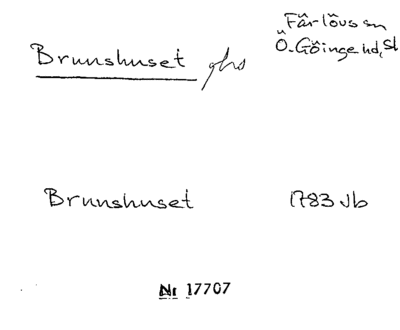 Färlövs sn
Brunshuset ghs Ö. Göinge hd, Sk
Brunshuset 1783 Jb
Nr 17707